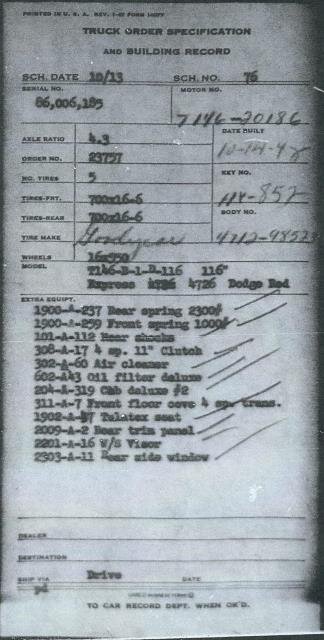 PRINTED IN U. S. A. REV.
TRUCK ORDER SPECIFICATION
AND BUILDING RECORD
SCH. DATE 10/13 SCH. NO. 76
SERIAL NO. MOTOR NO.
86,006,185 7146-20186
AXLE RATIO 4.3 DATE BUILT
ORDER NO. 23757 10-14-4
NO. TIRES 5 KEY NO.
TIRES-FRT. 700x16-6 114-852
TIRES-REAR 700x16-6 BODY NO.
TIRE MAKE Goodyear 4712-98523
WHEELS 16x550
MODEL T146-B-1-D-116 116"
Express 4726 4726 Dodge Red
EXTRA EQUIPT.
1900-A-237 Rear spring 2300#
1900-A-259 Front spring 1000#
101-A-112 Rear shocks
308-A-17 4 sp. 11" Clutch
302-A-60 Air cleaner
602-A43 Oil filter deluxe
204-A-319 Cab deluxe #2
311-A-7 Front floor cove 4 sp. trans.
1902-A-57 Talatex seat
2009-A-2 Rear trim panel
2201-A-16 W/S Visor
2303-A-11 Rear side window
DEALER
DESTINATION
SHIP VIA Drive DATE
pd
TO CAR RECORD DEPT. WHEN OK'D.